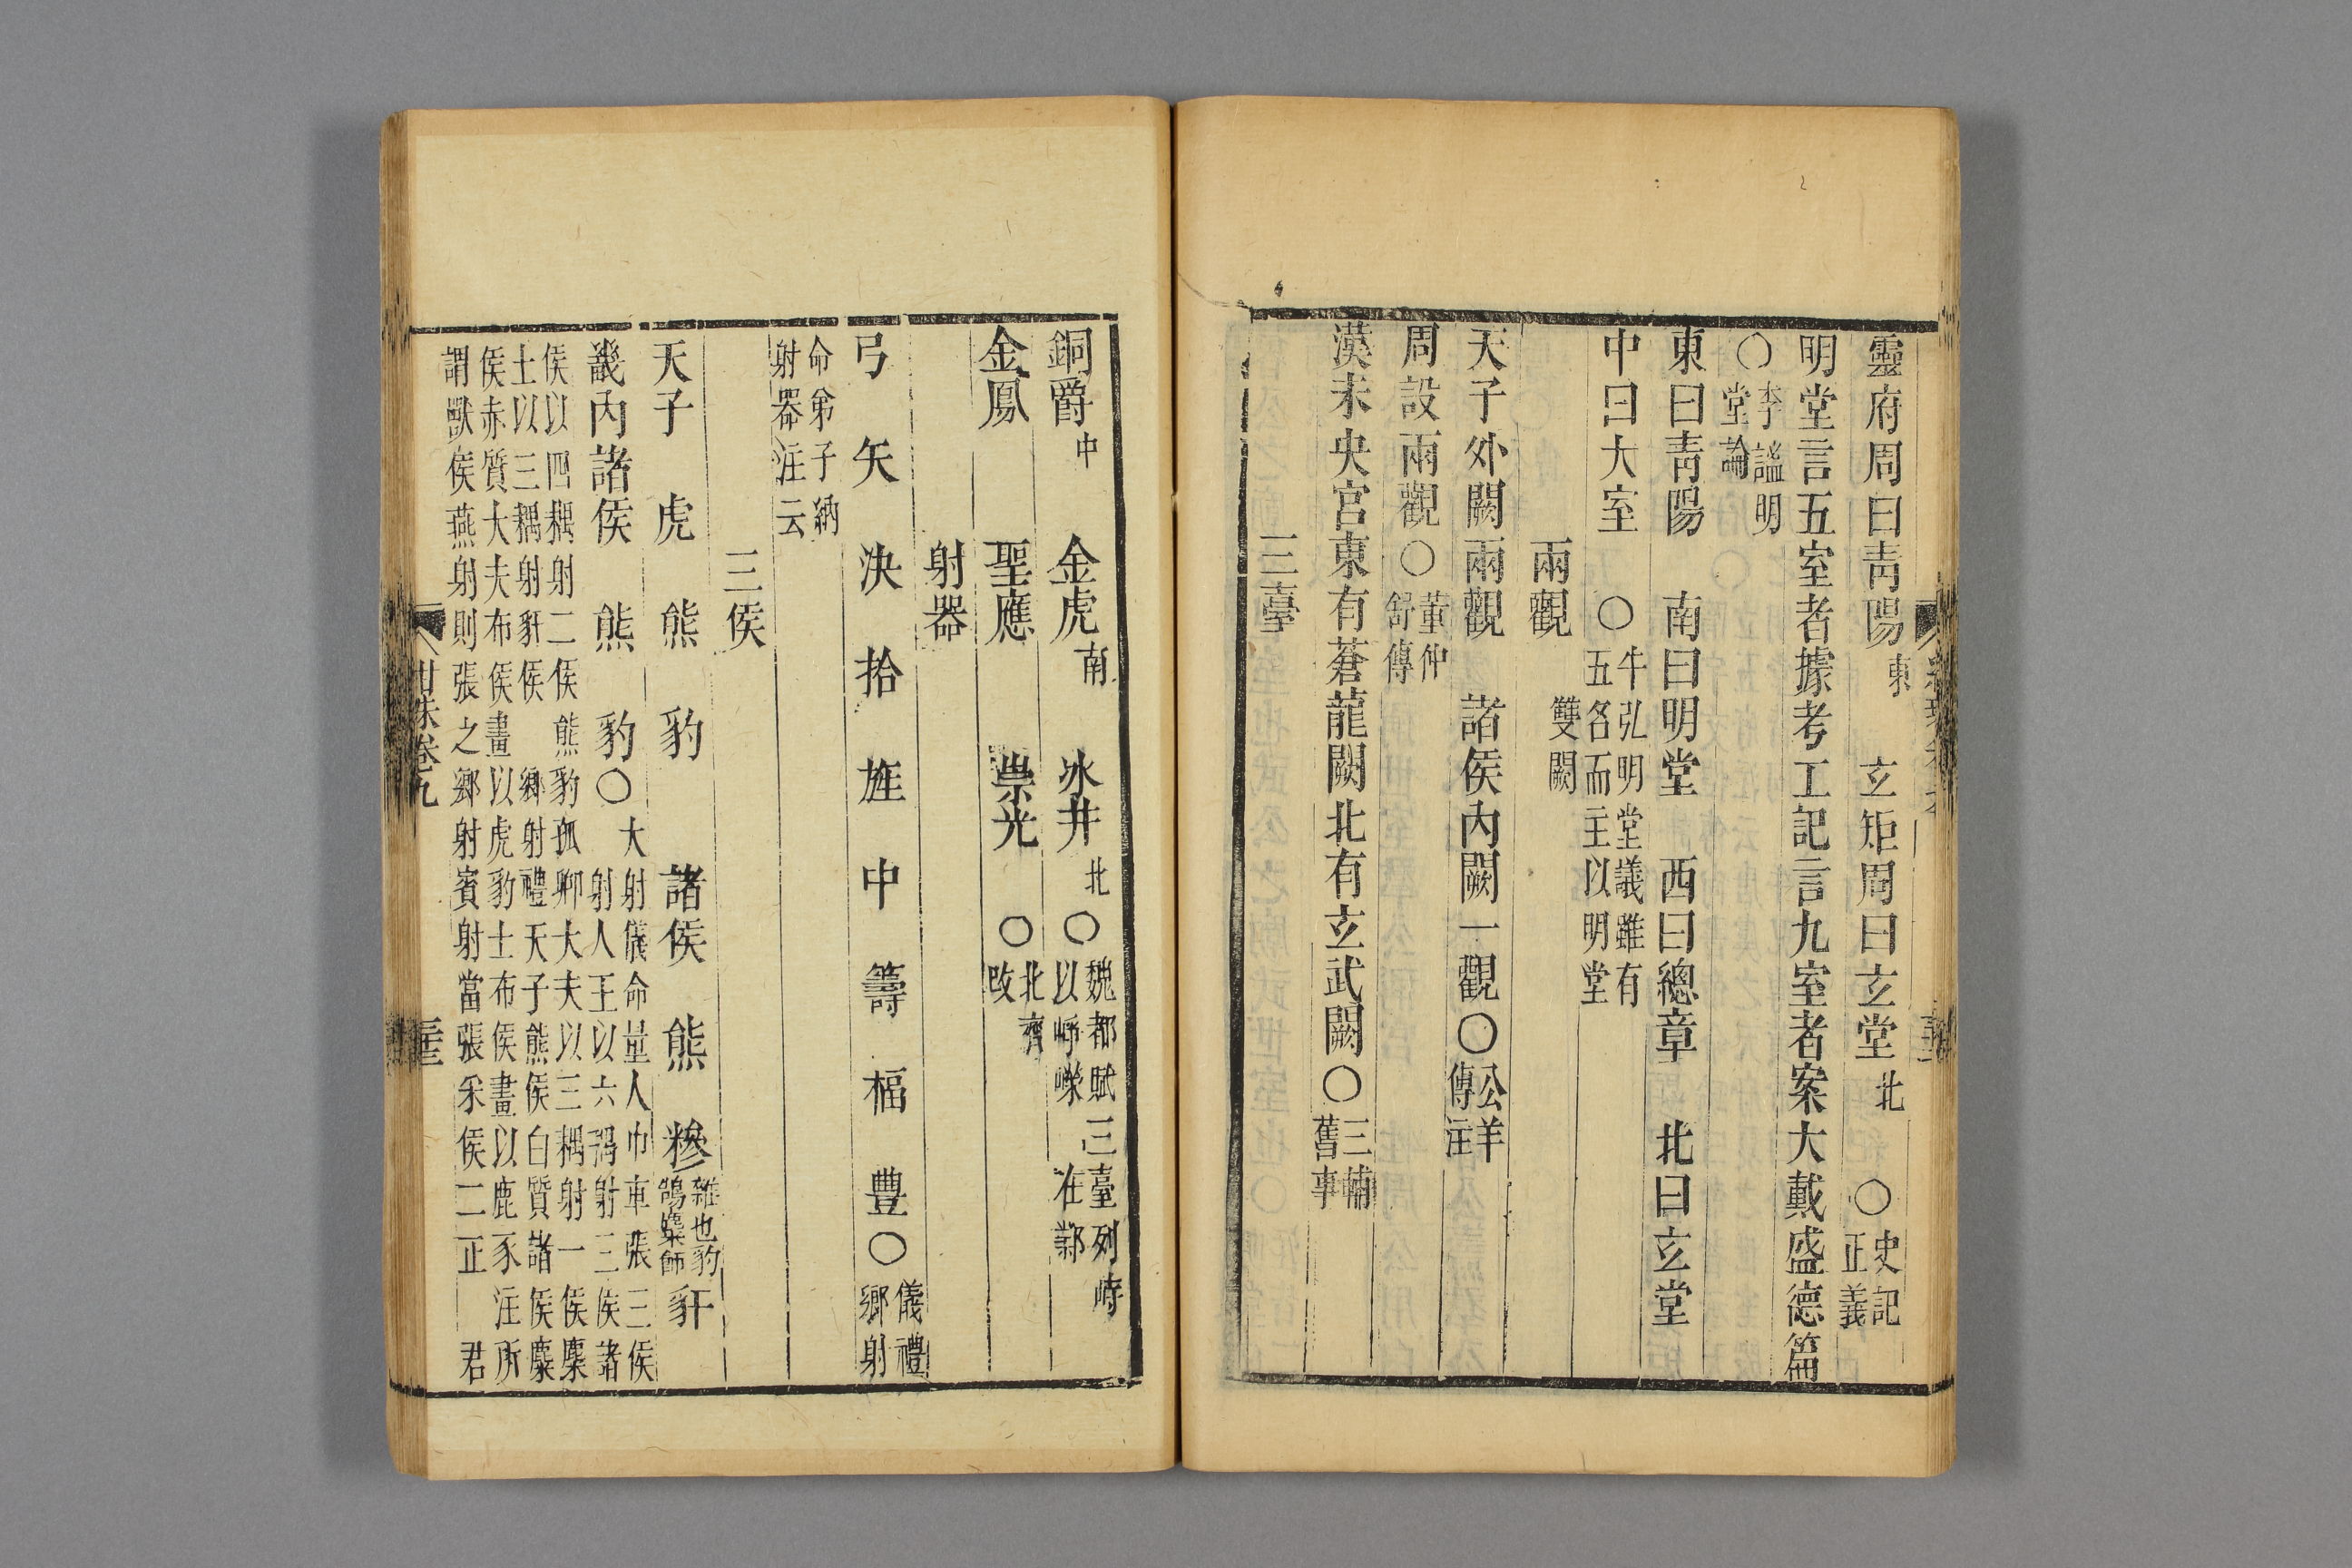 靈府周曰青陽東　玄矩周曰玄堂北　〇史記正義
明堂言五室者據考工記言九室者案大戴盛德篇
〇李謐明堂論
東曰青陽　南曰明堂　西曰總章　北曰玄堂
中曰大室　〇牛弘明堂議雖有五名而主以明堂
兩觀　雙闕
天子外闕兩觀　諸侯內闕一觀〇公羊傳注
周設兩觀〇董仲舒傳
漢未央宮東有蒼龍闕北有玄武闕〇三輔舊事
三臺
銅爵中　金虎南　冰井北〇魏都賦三臺列峙以崢嶸在鄴
金鳳　聖應　崇光　〇北齊改
射器
弓　矢　決　拾　旌　中　籌　楅　豊〇儀禮鄉射
命弟子納射器注云
三侯
天子　虎　熊　豹　諸侯　熊　糝雜也豹鵠麋飾　豻
畿內諸侯　熊　豹〇大射儀命量人巾車張三侯諸射人王以六耦射三侯諸
侯以四耦射二侯熊豹孤卿大夫以三耦射一侯麋
士以三耦射豻侯　鄉射禮天子熊侯白質諸侯麋
侯赤質大夫布侯畫以虎豹士布侯畫以鹿豕注所
謂獸侯燕射則張之鄉射賓射當張采侯二正　君
卷九